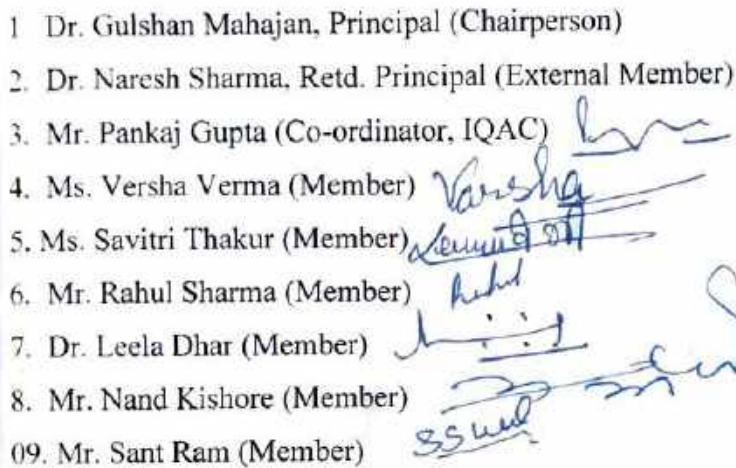 1 Dr. Gulshan Mahajan, Principal (Chairperson)
2. Dr. Naresh Sharma, Retd. Principal (External Member)
3. Mr. Pankaj Gupta (Co-ordinator, IQAC)
4. Ms. Versha Verma (Member) Varsha
5. Ms. Savitri Thakur (Member)
6. Mr. Rahul Sharma (Member) Rahul
7. Dr. Leela Dhar (Member)
8. Mr. Nand Kishore (Member)
09. Mr. Sant Ram (Member)